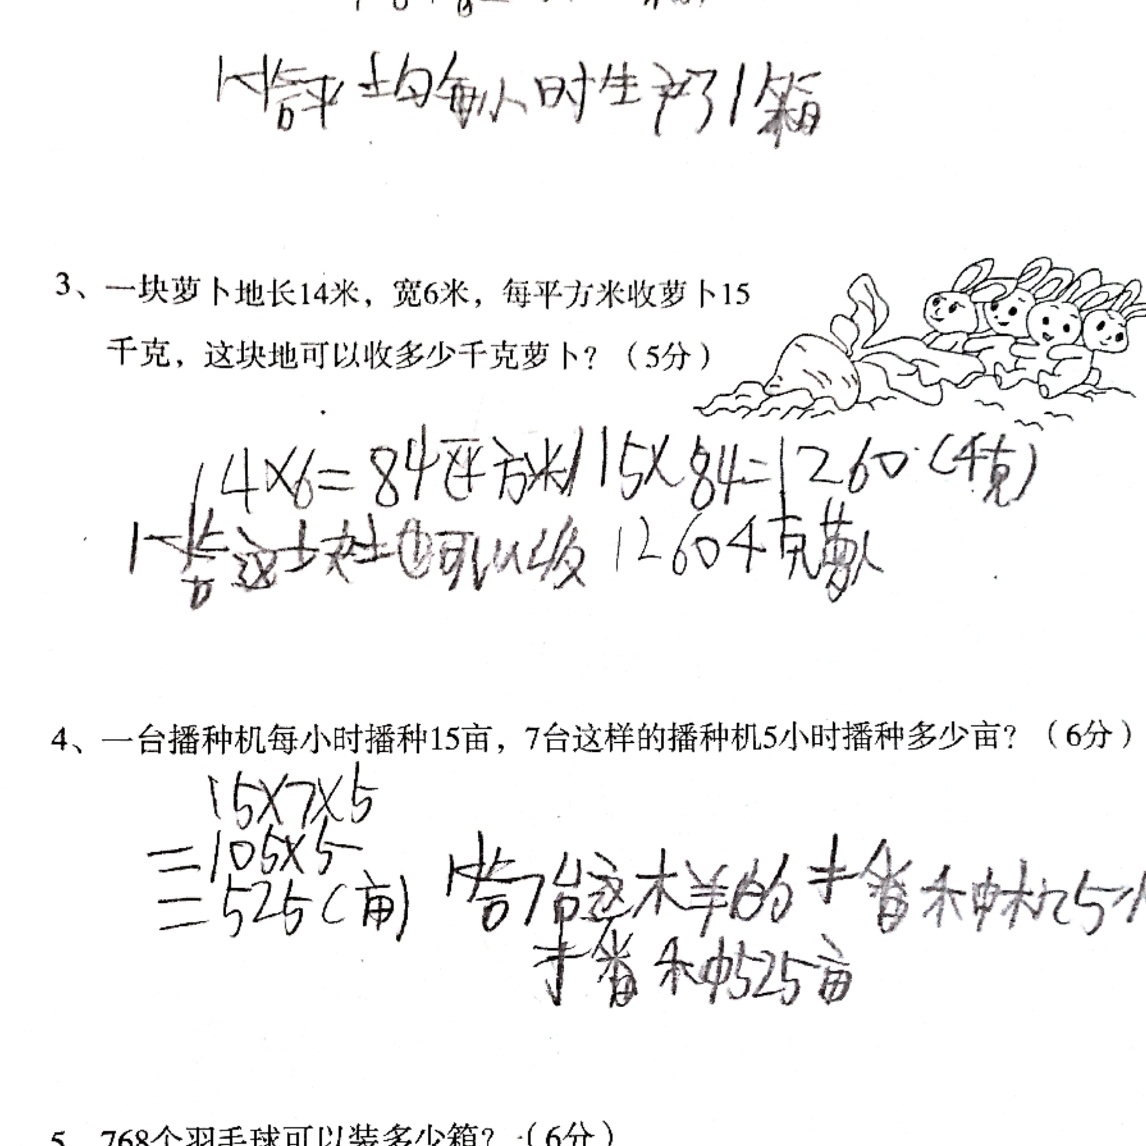 个答平均每小时生产了1箱
3、一块萝卜地长14米，宽6米，每平方米收萝卜15
千克，这块地可以收多少千克萝卜？（5分）
14×6=84(平方米)15×84=1260(千克)
答这块地可以收1260千克萝卜
4、一台播种机每小时播种15亩，7台这样的播种机5小时播种多少亩？（6分）
15×7×5
=105×5
=525(亩)
答7台这样的播种机5小
播种525亩
5、768个羽毛球可以装多少箱？（6分）